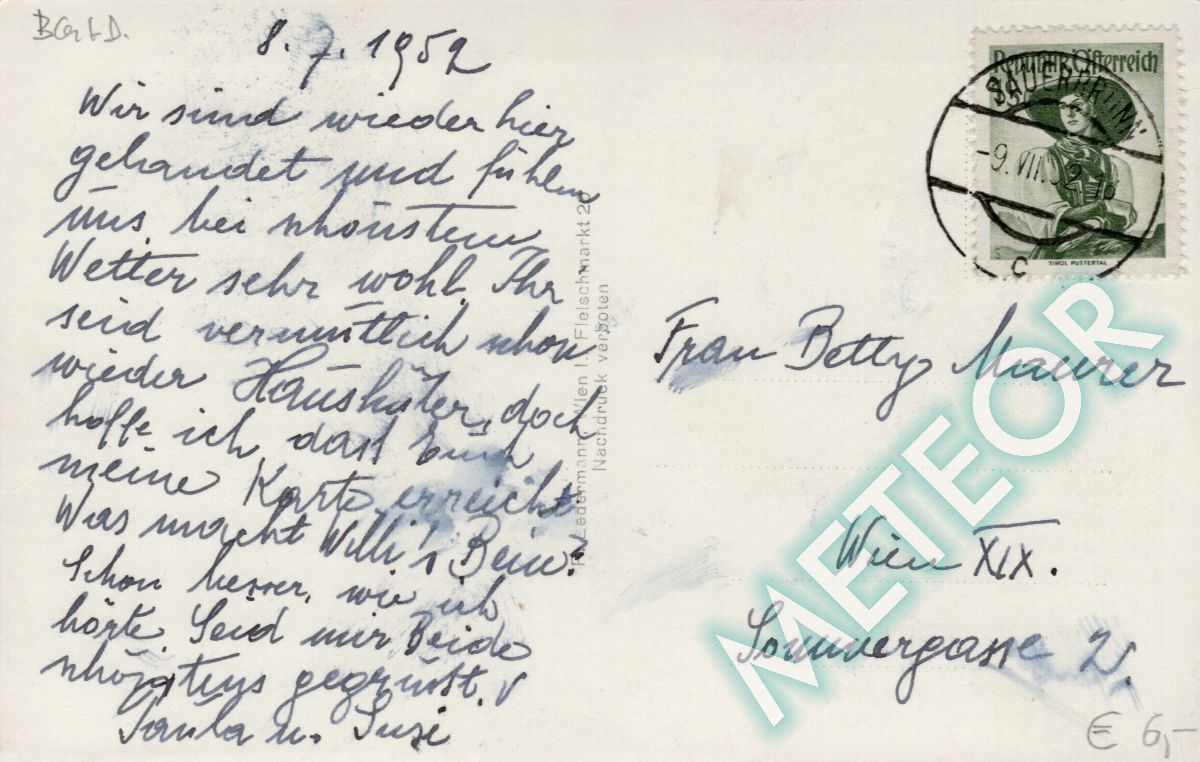 BGLD.
8. 7. 1952
Wir sind wieder hier
gelandet und fühlen
uns bei schönstem
Wetter sehr wohl. Ihr
seid vermutlich schon
wieder Haushüter, doch
hoffe ich, dass Euch
meine Karte erreicht.
Was macht Willi's Bein?
Schon besser, wie ich
hörte. Seid mir Beide
schönstens gegrüsst. v
Paula u. Susi
Ledermann, Wien I, Fleischmarkt 20
Nachdruck verboten
Republik Österreich
SAUERBRUNN
-9. VII. 52
C
TIROL PUSTERTAL
Frau Betty Maurer
Wien XIX.
Sommergasse 2.
METEOR
€ 6,-